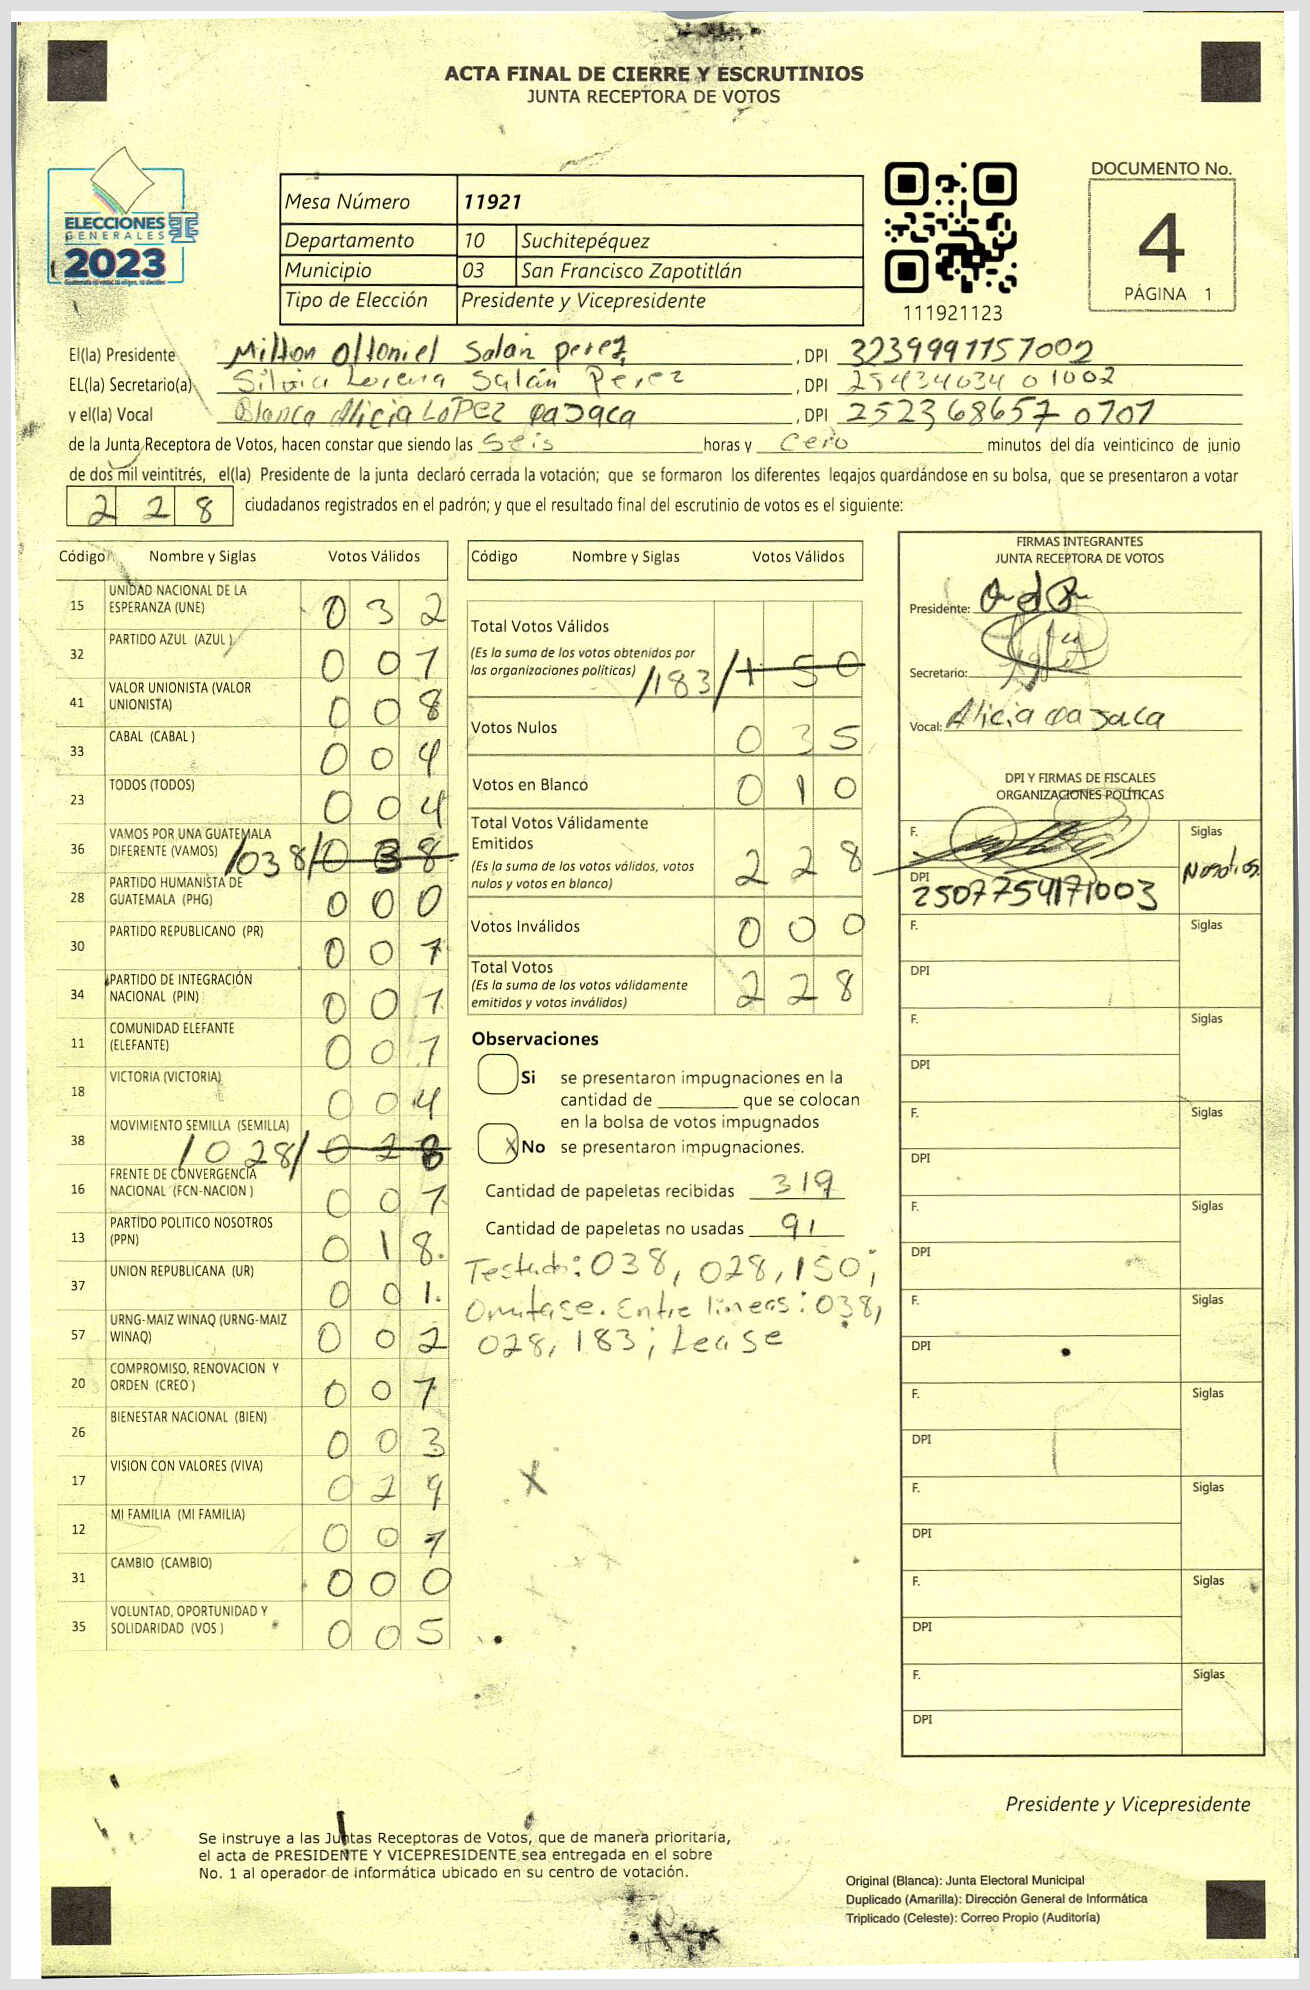 ACTA FINAL DE CIERRE Y ESCRUTINIOS
JUNTA RECEPTORA DE VOTOS
ELECCIONES
GENERALES
2023
Mesa Número 11921
Departamento 10 Suchitepéquez
Municipio 03 San Francisco Zapotitlán
Tipo de Elección Presidente y Vicepresidente
111921123
DOCUMENTO No.
4
PÁGINA 1
El(la) Presidente Milton Ottoniel Salán perez, DPI 3239991157002
EL(la) Secretario(a) Silvia Lorena Salán Perez , DPI 25434634 01002
y el(la) Vocal Blanca Alicia LóPEZ oaxaca , DPI 252368657 0101
de la Junta Receptora de Votos, hacen constar que siendo las Seis horas y Cero minutos del día veinticinco de junio
de dos mil veintitrés, el(la) Presidente de la junta declaró cerrada la votación; que se formaron los diferentes legajos quardándose en su bolsa, que se presentaron a votar
2 2 8 ciudadanos registrados en el padrón; y que el resultado final del escrutinio de votos es el siguiente:
Código Nombre y Siglas Votos Válidos
15 UNIDAD NACIONAL DE LA ESPERANZA (UNE) 0 3 2
32 PARTIDO AZUL (AZUL ) 0 0 1
41 VALOR UNIONISTA (VALOR UNIONISTA) 0 0 8
33 CABAL (CABAL ) 0 0 4
23 TODOS (TODOS) 0 0 4
36 VAMOS POR UNA GUATEMALA DIFERENTE (VAMOS) /038/ 0 3 8
28 PARTIDO HUMANISTA DE GUATEMALA (PHG) 0 0 0
30 PARTIDO REPUBLICANO (PR) 0 0 1
34 PARTIDO DE INTEGRACIÓN NACIONAL (PIN) 0 0 1
11 COMUNIDAD ELEFANTE (ELEFANTE) 0 0 1
18 VICTORIA (VICTORIA) 0 0 4
38 MOVIMIENTO SEMILLA (SEMILLA) /028/ 0 2 8
16 FRENTE DE CONVERGENCIA NACIONAL (FCN-NACION ) 0 0 1
13 PARTIDO POLITICO NOSOTROS (PPN) 0 1 8.
37 UNION REPUBLICANA (UR) 0 0 1.
57 URNG-MAIZ WINAQ (URNG-MAIZ WINAQ) 0 0 2
20 COMPROMISO, RENOVACION Y ORDEN (CREO ) 0 0 1
26 BIENESTAR NACIONAL (BIEN) 0 0 3
17 VISION CON VALORES (VIVA) 0 2 9
12 MI FAMILIA (MI FAMILIA) 0 0 1
31 CAMBIO (CAMBIO) 0 0 0
35 VOLUNTAD, OPORTUNIDAD Y SOLIDARIDAD (VOS ) 0 0 5
Código Nombre y Siglas Votos Válidos
Total Votos Válidos
(Es la suma de los votos obtenidos por
las organizaciones políticas) /183/ 1 5 0
Votos Nulos 0 3 5
Votos en Blanco 0 1 0
Total Votos Válidamente
Emitidos
(Es la suma de los votos válidos, votos
nulos y votos en blanco) 2 2 8
Votos Inválidos 0 0 0
Total Votos
(Es la suma de los votos válidamente
emitidos y votos inválidos) 2 2 8
Observaciones
Si se presentaron impugnaciones en la
cantidad de ________ que se colocan
en la bolsa de votos impugnados
X No se presentaron impugnaciones.
Cantidad de papeletas recibidas 319
Cantidad de papeletas no usadas 91
Testado: 038, 028, 150;
Omitase. Entre líneas: 038,
028, 183; Lease
X
FIRMAS INTEGRANTES
JUNTA RECEPTORA DE VOTOS
Presidente:
Secretario:
Vocal: Alicia oaxaca
DPI Y FIRMAS DE FISCALES
ORGANIZACIONES POLÍTICAS
F. Siglas
Nosotros
DPI
2507754171003
F. Siglas
DPI
F. Siglas
DPI
F. Siglas
DPI
F. Siglas
DPI
F. Siglas
DPI
F. Siglas
DPI
F. Siglas
DPI
F. Siglas
DPI
F. Siglas
DPI
Presidente y Vicepresidente
Se instruye a las Juntas Receptoras de Votos, que de manera prioritaria,
el acta de PRESIDENTE Y VICEPRESIDENTE sea entregada en el sobre
No. 1 al operador de informática ubicado en su centro de votación.
Original (Blanca): Junta Electoral Municipal
Duplicado (Amarilla): Dirección General de Informática
Triplicado (Celeste): Correo Propio (Auditoría)